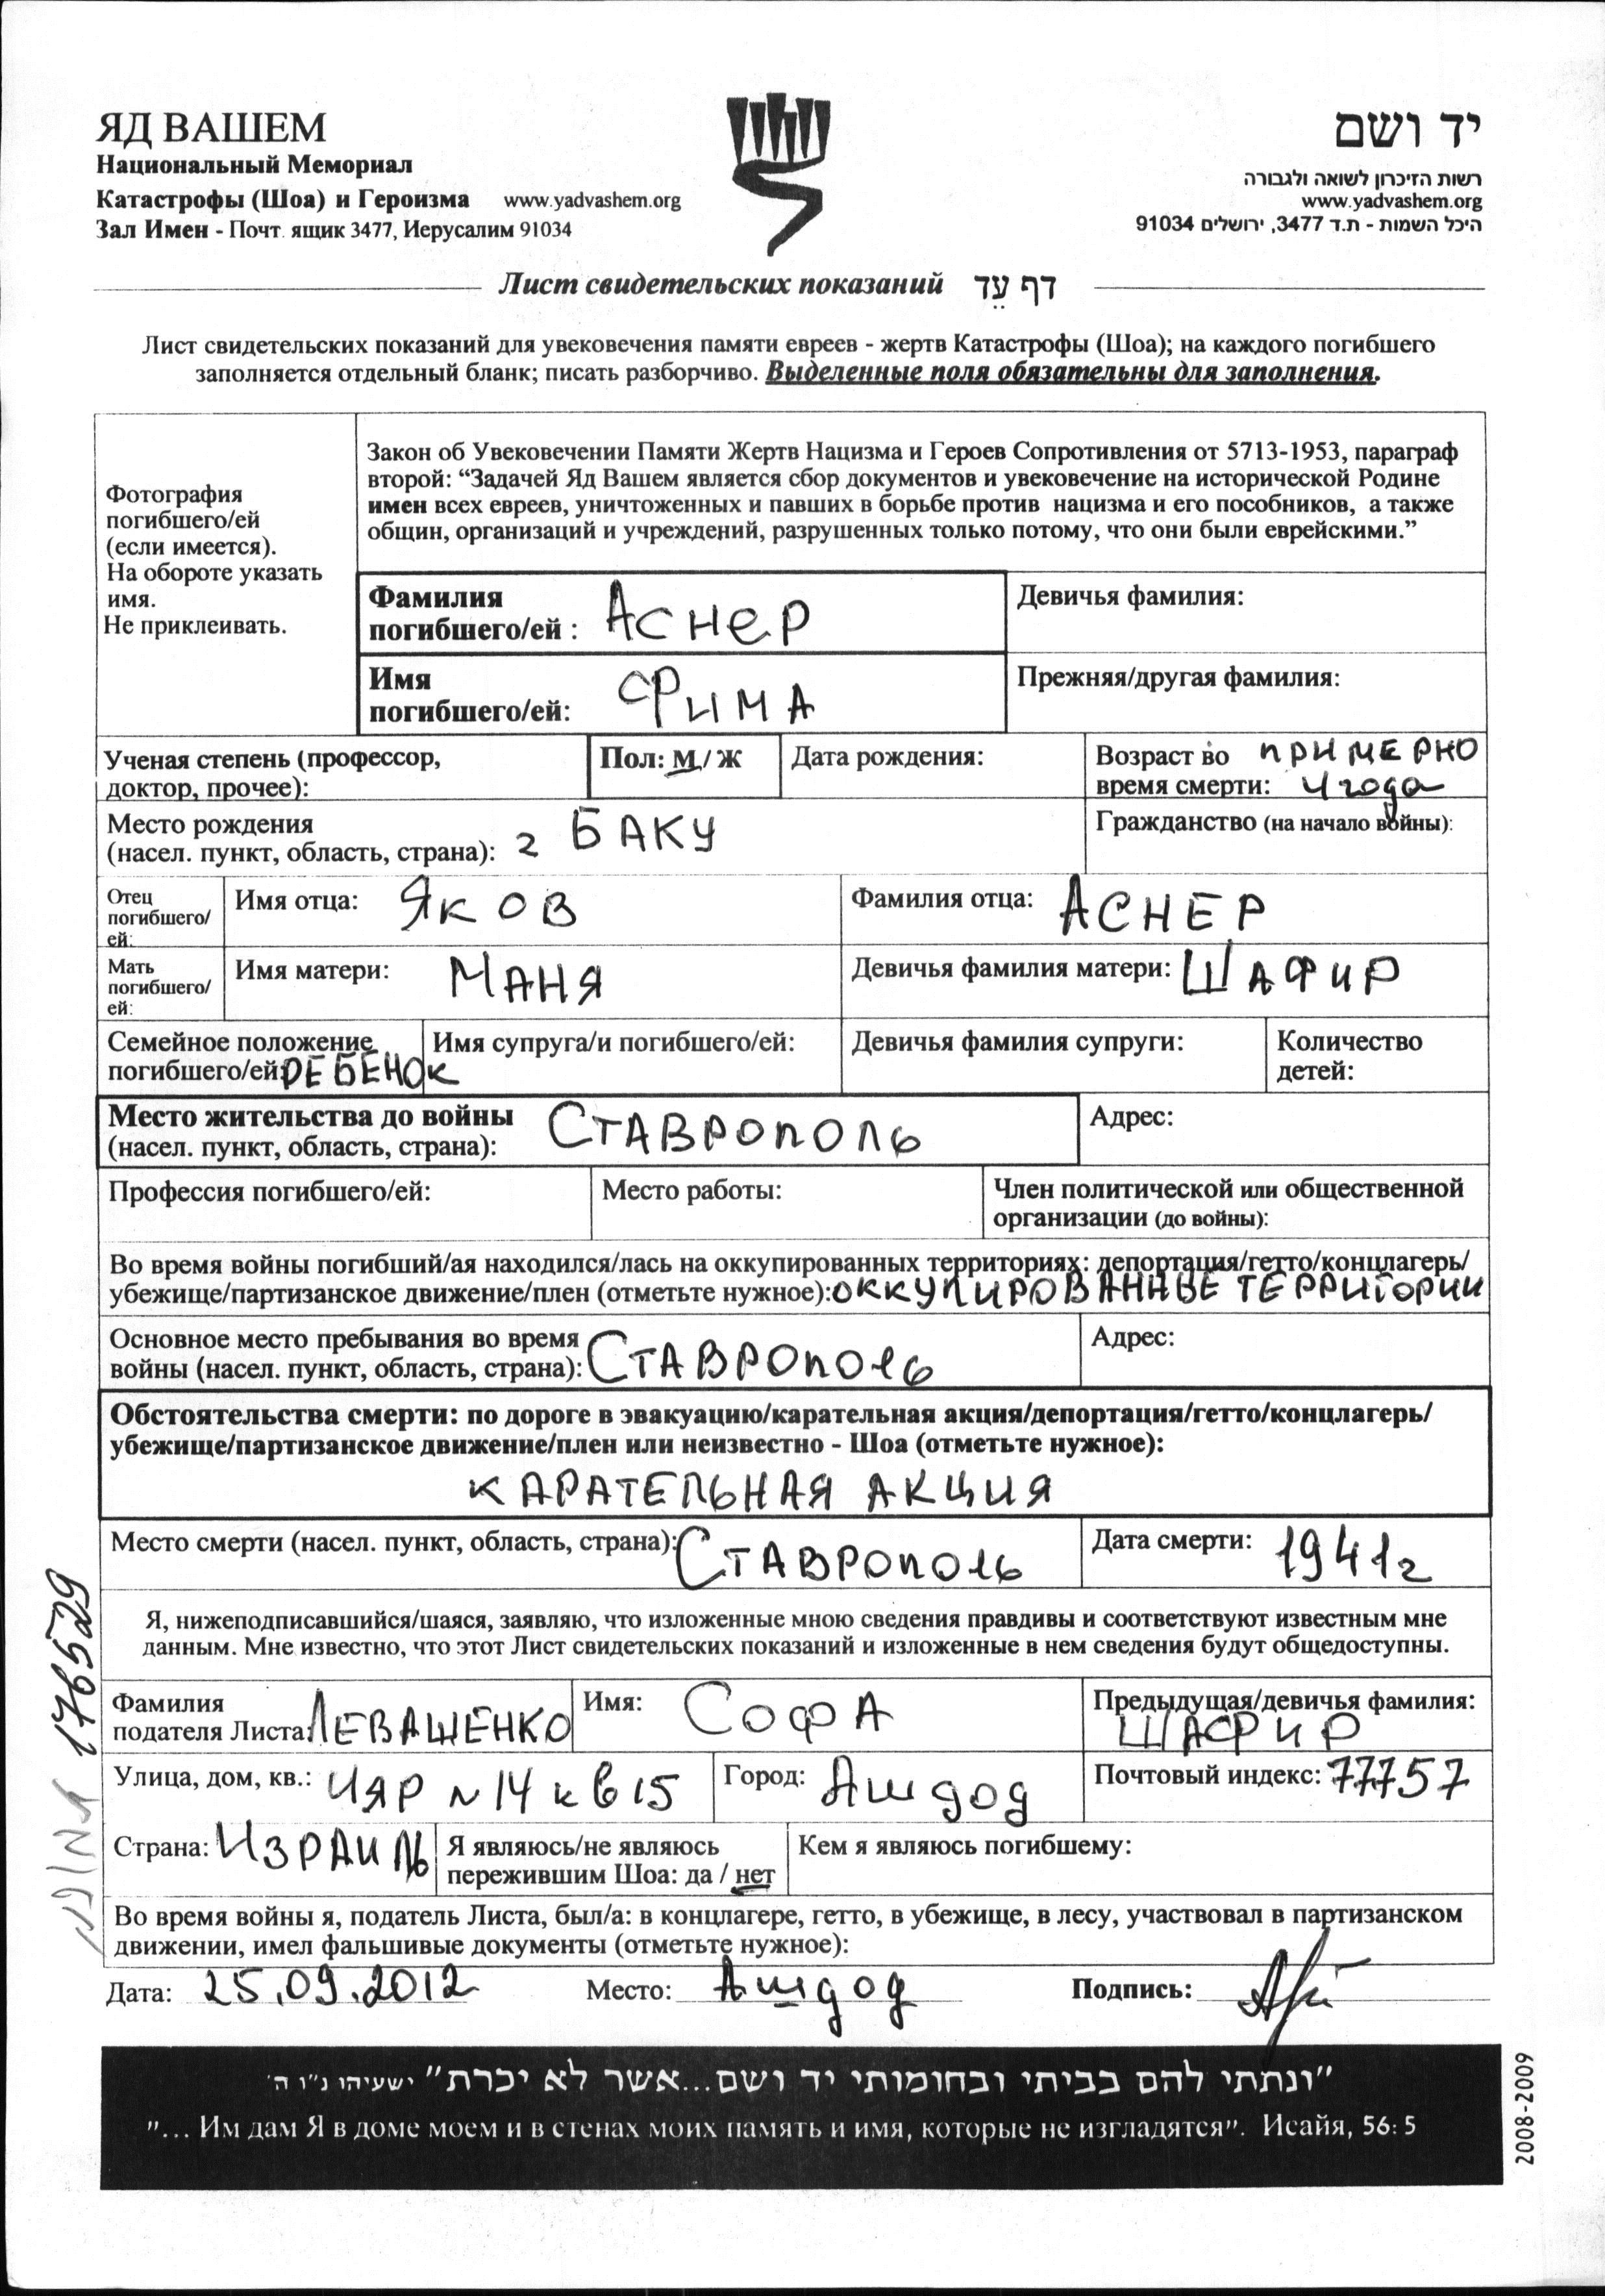 ЯД ВАШЕМ
Национальный Мемориал
Катастрофы (Шоа) и Героизма www.yadvashem.org
Зал Имен - Почт. ящик 3477, Иерусалим 91034
יד ושם
רשות הזיכרון לשואה ולגבורה
www.yadvashem.org
היכל השמות - ת.ד 3477, ירושלים 91034
Лист свидетельских показаний דף עד
Лист свидетельских показаний для увековечения памяти евреев - жертв Катастрофы (Шоа); на каждого погибшего
заполняется отдельный бланк; писать разборчиво. Выделенные поля обязательны для заполнения.
Фотография
погибшего/ей
(если имеется).
На обороте указать
имя.
Не приклеивать.
Закон об Увековечении Памяти Жертв Нацизма и Героев Сопротивления от 5713-1953, параграф
второй: “Задачей Яд Вашем является сбор документов и увековечение на исторической Родине
имен всех евреев, уничтоженных и павших в борьбе против нацизма и его пособников, а также
общин, организаций и учреждений, разрушенных только потому, что они были еврейскими.”
Фамилия
погибшего/ей : Аснер
Девичья фамилия:
Имя
погибшего/ей: Фима
Прежняя/другая фамилия:
Ученая степень (профессор,
доктор, прочее):
Пол: М/ Ж
Дата рождения:
Возраст во примерно
время смерти: 4 года
Место рождения
(насел. пункт, область, страна): г БАКУ
Гражданство (на начало войны):
Отец
погибшего/
ей:
Имя отца: Яков
Фамилия отца: АСНЕР
Мать
погибшего/
ей:
Имя матери: Маня
Девичья фамилия матери: ШАФИР
Семейное положение
погибшего/ей: РЕБЕНОК
Имя супруга/и погибшего/ей:
Девичья фамилия супруги:
Количество
детей:
Место жительства до войны
(насел. пункт, область, страна): СТАВРОПОЛЬ
Адрес:
Профессия погибшего/ей:
Место работы:
Член политической или общественной
организации (до войны):
Во время войны погибший/ая находился/лась на оккупированных территориях: депортация/гетто/концлагерь/
убежище/партизанское движение/плен (отметьте нужное): ОККУПИРОВАННЫЕ ТЕРРИТОРИИ
Основное место пребывания во время
войны (насел. пункт, область, страна): СТАВРОПОЛЬ
Адрес:
Обстоятельства смерти: по дороге в эвакуацию/карательная акция/депортация/гетто/концлагерь/
убежище/партизанское движение/плен или неизвестно - Шоа (отметьте нужное):
КАРАТЕЛЬНАЯ АКЦИЯ
Место смерти (насел. пункт, область, страна): СТАВРОПОЛЬ
Дата смерти: 1941г
Я, нижеподписавшийся/шаяся, заявляю, что изложенные мною сведения правдивы и соответствуют известным мне
данным. Мне известно, что этот Лист свидетельских показаний и изложенные в нем сведения будут общедоступны.
Фамилия
подателя Листа: ЛЕВАШЕНКО
Имя: СОФА
Предыдущая/девичья фамилия:
ШАФИР
Улица, дом, кв.: ИЯР N 14 кв 15
Город: Ашдод
Почтовый индекс: 77757
Страна: ИЗРАИЛЬ
Я являюсь/не являюсь
пережившим Шоа: да / нет
Кем я являюсь погибшему:
Во время войны я, податель Листа, был/а: в концлагере, гетто, в убежище, в лесу, участвовал в партизанском
движении, имел фальшивые документы (отметьте нужное):
Дата: 25.09.2012 Место: Ашдод Подпись:
"ונתתי להם בביתי ובחומותי יד ושם...אשר לא יכרת" ישעיהו נ"ו ה'
"... Им дам Я в доме моем и в стенах моих память и имя, которые не изгладятся". Исайя, 56: 5
2008-2009
176529